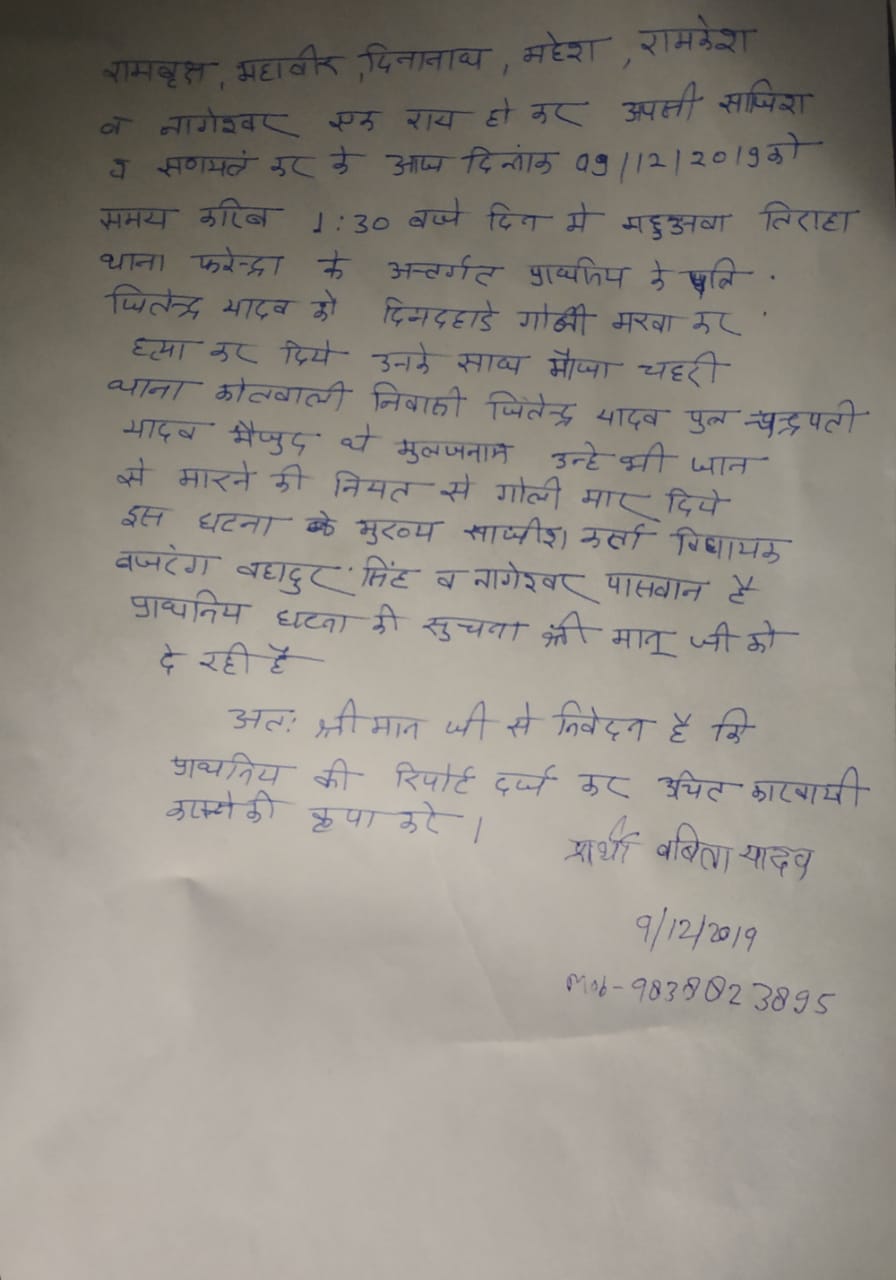 रामबृक्ष, महावीर, दिनानाथ, महेश, रामकेश
व नागेश्वर एक राय हो कर अपली साजिश
व सणयतं कर के आज दिनांक 09/12/2019 को
समय करिब 1:30 बजे दिन मे महुअवा तिराहा
थाना फरेन्द्रा के अन्तर्गत प्राथनिय के पति
जितेन्द्र यादव को दिनदहाडे गोली मरवा कर
हत्या कर दिये उनके साथ मौजा चहरी
थाना कोतवाली निवासी जितेन्द्र यादव पुत्र चन्द्रपती
यादव मैजुद थे मुलजनान उन्हे भी जान
से मारने की नियत से गोली मार दिये
इस घटना के मुख्य साजीश कर्ता विधायक
बजरंग बहादुर सिंह व नागेश्वर पासवान है
प्राथनिय घटना की सुचना श्री मान् जी को
दे रही है
अतः श्री मान जी से निवेदन है कि
प्राथनिय की रिपोर्ट दर्ज कर उचित कारवायी
करने की कृपा करे।
प्रार्थी बबिता यादव
9/12/2019
Mob-9838823895